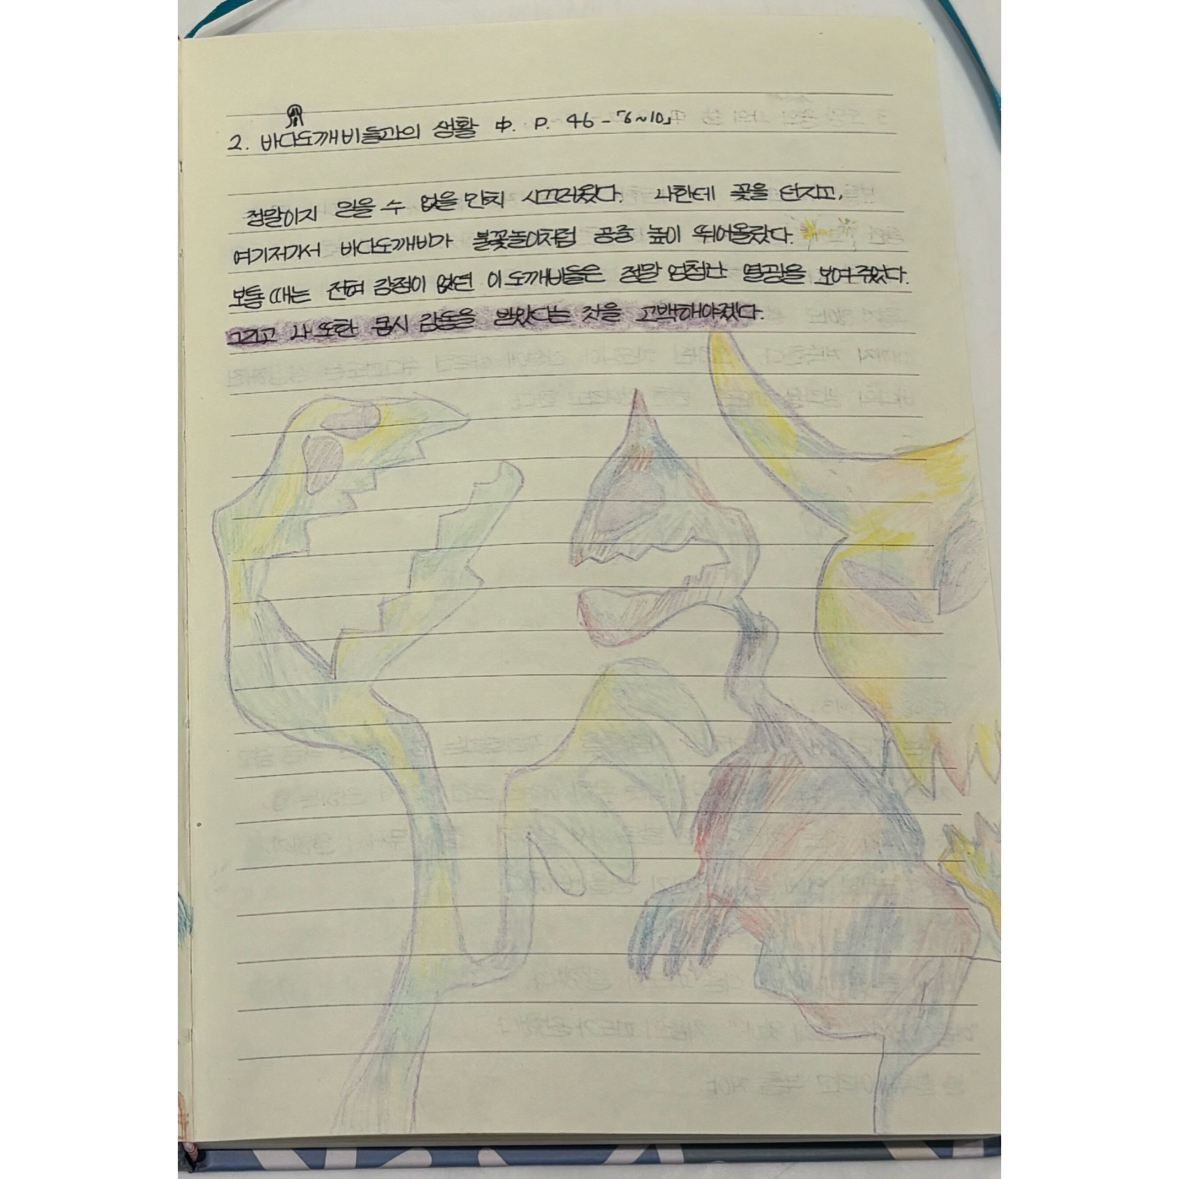 2. 바다도깨비들과의 생활 中. P. 46 - 「6~10」
정말이지 믿을 수 없을 만치 시끄러웠다. 나한테 꽃을 던지고,
여기저기서 바다도깨비가 불꽃놀이처럼 공중 높이 뛰어올랐다.
보통 때는 전혀 감정이 없던 이 도깨비들은 정말 엄청난 열광을 보여주었다.
그리고 나 또한 몹시 감동을 받았다는 것을 고백해야겠다.